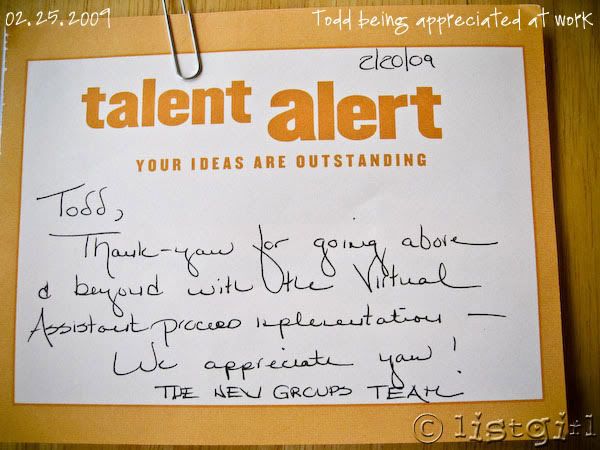 02.25.2009
Todd being appreciated at work
2/20/09
talent alert
YOUR IDEAS ARE OUTSTANDING
Todd,
Thank-you for going above
& beyond with the Virtual
Assistant process implementation —
We appreciate you!
THE NEW GROUPS TEAM
© listgirl